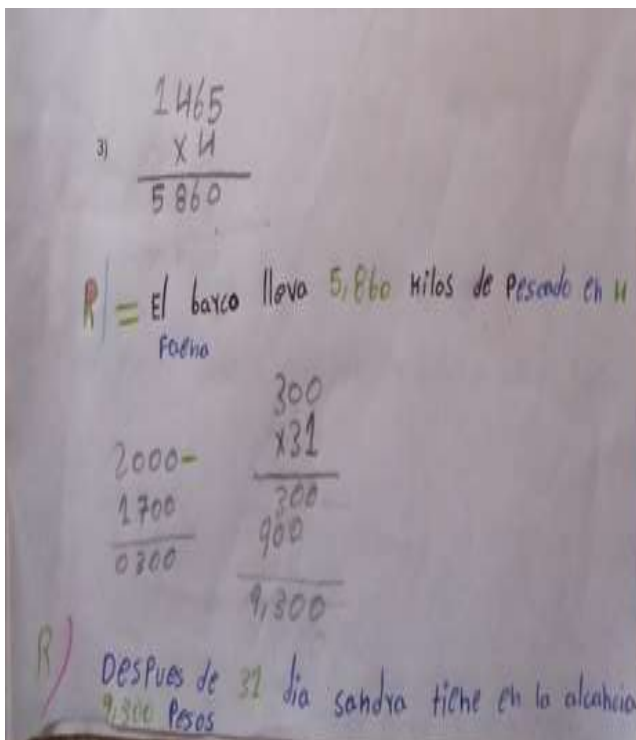 1465
3) X 4
5860
R/ = El barco lleva 5,860 kilos de pescado en 4
Faena
2000-
1700
0300
300
x31
300
900
9,300
R/ Despues de 31 dia sandra tiene en la alcancia
9,300 Pesos